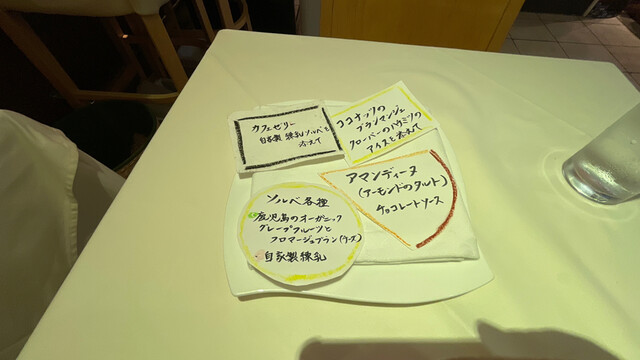 カフェゼリー
自家製 練乳ソルベを
添えて
ココナッツの
ブランマンジェ
クローバーのハウミツの
アイスを添えて
アマンディーヌ
(アーモンドのタルト)
チョコレートソース
ソルベ各種
鹿児島のオーガニック
グレープフルーツと
フロマージュブラン(チーズ)
自家製練乳